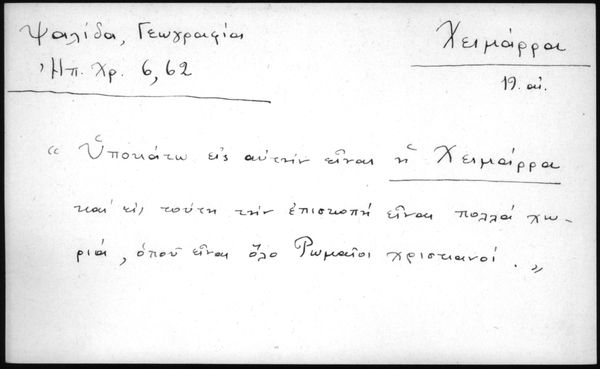 Ψαλίδα, Γεωγραφία
Χειμάρρα
Ἠπ. Χρ. 6, 62
19. αἰ.
"Ὑποκάτω εἰς αὐτὴν εἶναι ἡ Χειμάρρα
καὶ εἰς τούτη τὴν ἐπισκοπή εἶναι πολλά χω-
ριά, ὁποῦ εἶναι ὅλο Ρωμαῖοι χριστιανοί."